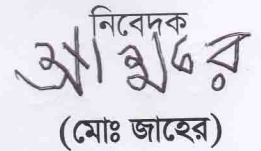 নিবেদক
(মোঃ জাহের)